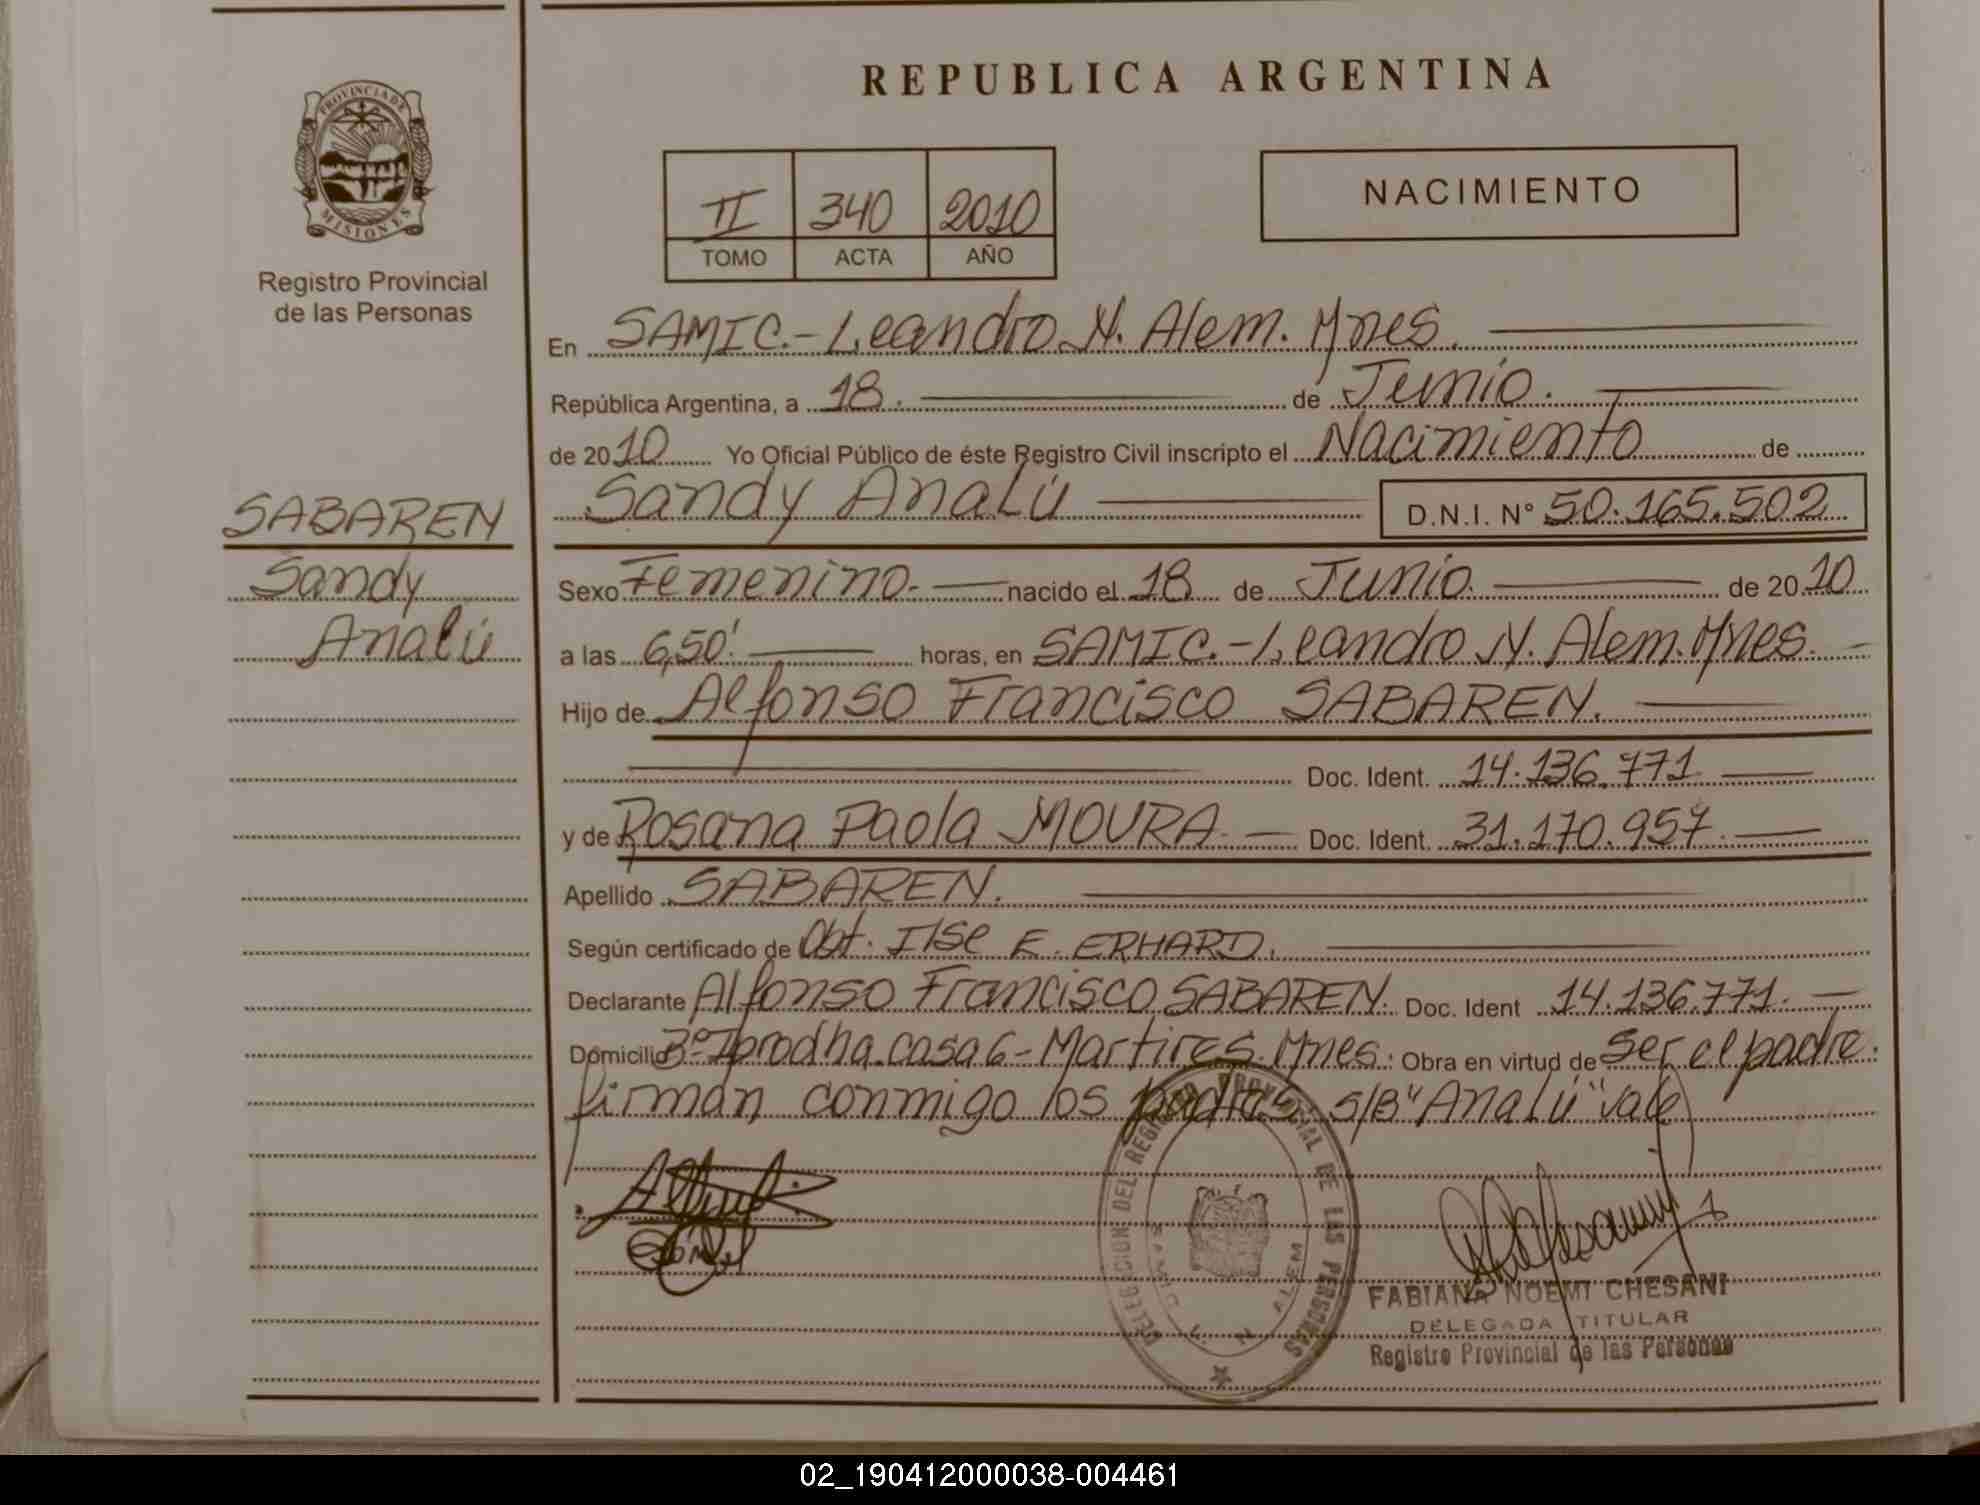 REPUBLICA ARGENTINA
PROVINCIA DE
MISIONES
Registro Provincial
de las Personas
II 340 2010
TOMO ACTA AÑO
NACIMIENTO
En SAMIC.- Leandro N. Alem. Mnes.
República Argentina, a 18. de Junio.
de 2010 Yo Oficial Público de éste Registro Civil inscripto el Nacimiento de
SABAREN
Sandy
Analú
Sandy Analú D.N.I. N° 50.165.502
Sexo Femenino.- nacido el 18 de Junio. de 2010
a las 6,50' horas, en SAMIC.- Leandro N. Alem. Mnes.
Hijo de Alfonso Francisco SABAREN.
Doc. Ident. 14.136.771
y de Rosana Paola MOURA.- Doc. Ident. 31.170.957.
Apellido SABAREN.
Según certificado de Obt. Ilse E. ERHARD.
Declarante Alfonso Francisco SABAREN. Doc. Ident 14.136.771.
Domicilio Bº Iprodha. casa 6 - Martires. Mnes. Obra en virtud de ser el padre.
firman conmigo los padres s/B "Analú" vale
DELEGACION DEL REGISTRO PROVINCIAL DE LAS PERSONAS
L. N. ALEM
FABIANA NOEMI CHESANI
DELEGADA TITULAR
Registro Provincial de las Personas
02_190412000038-004461